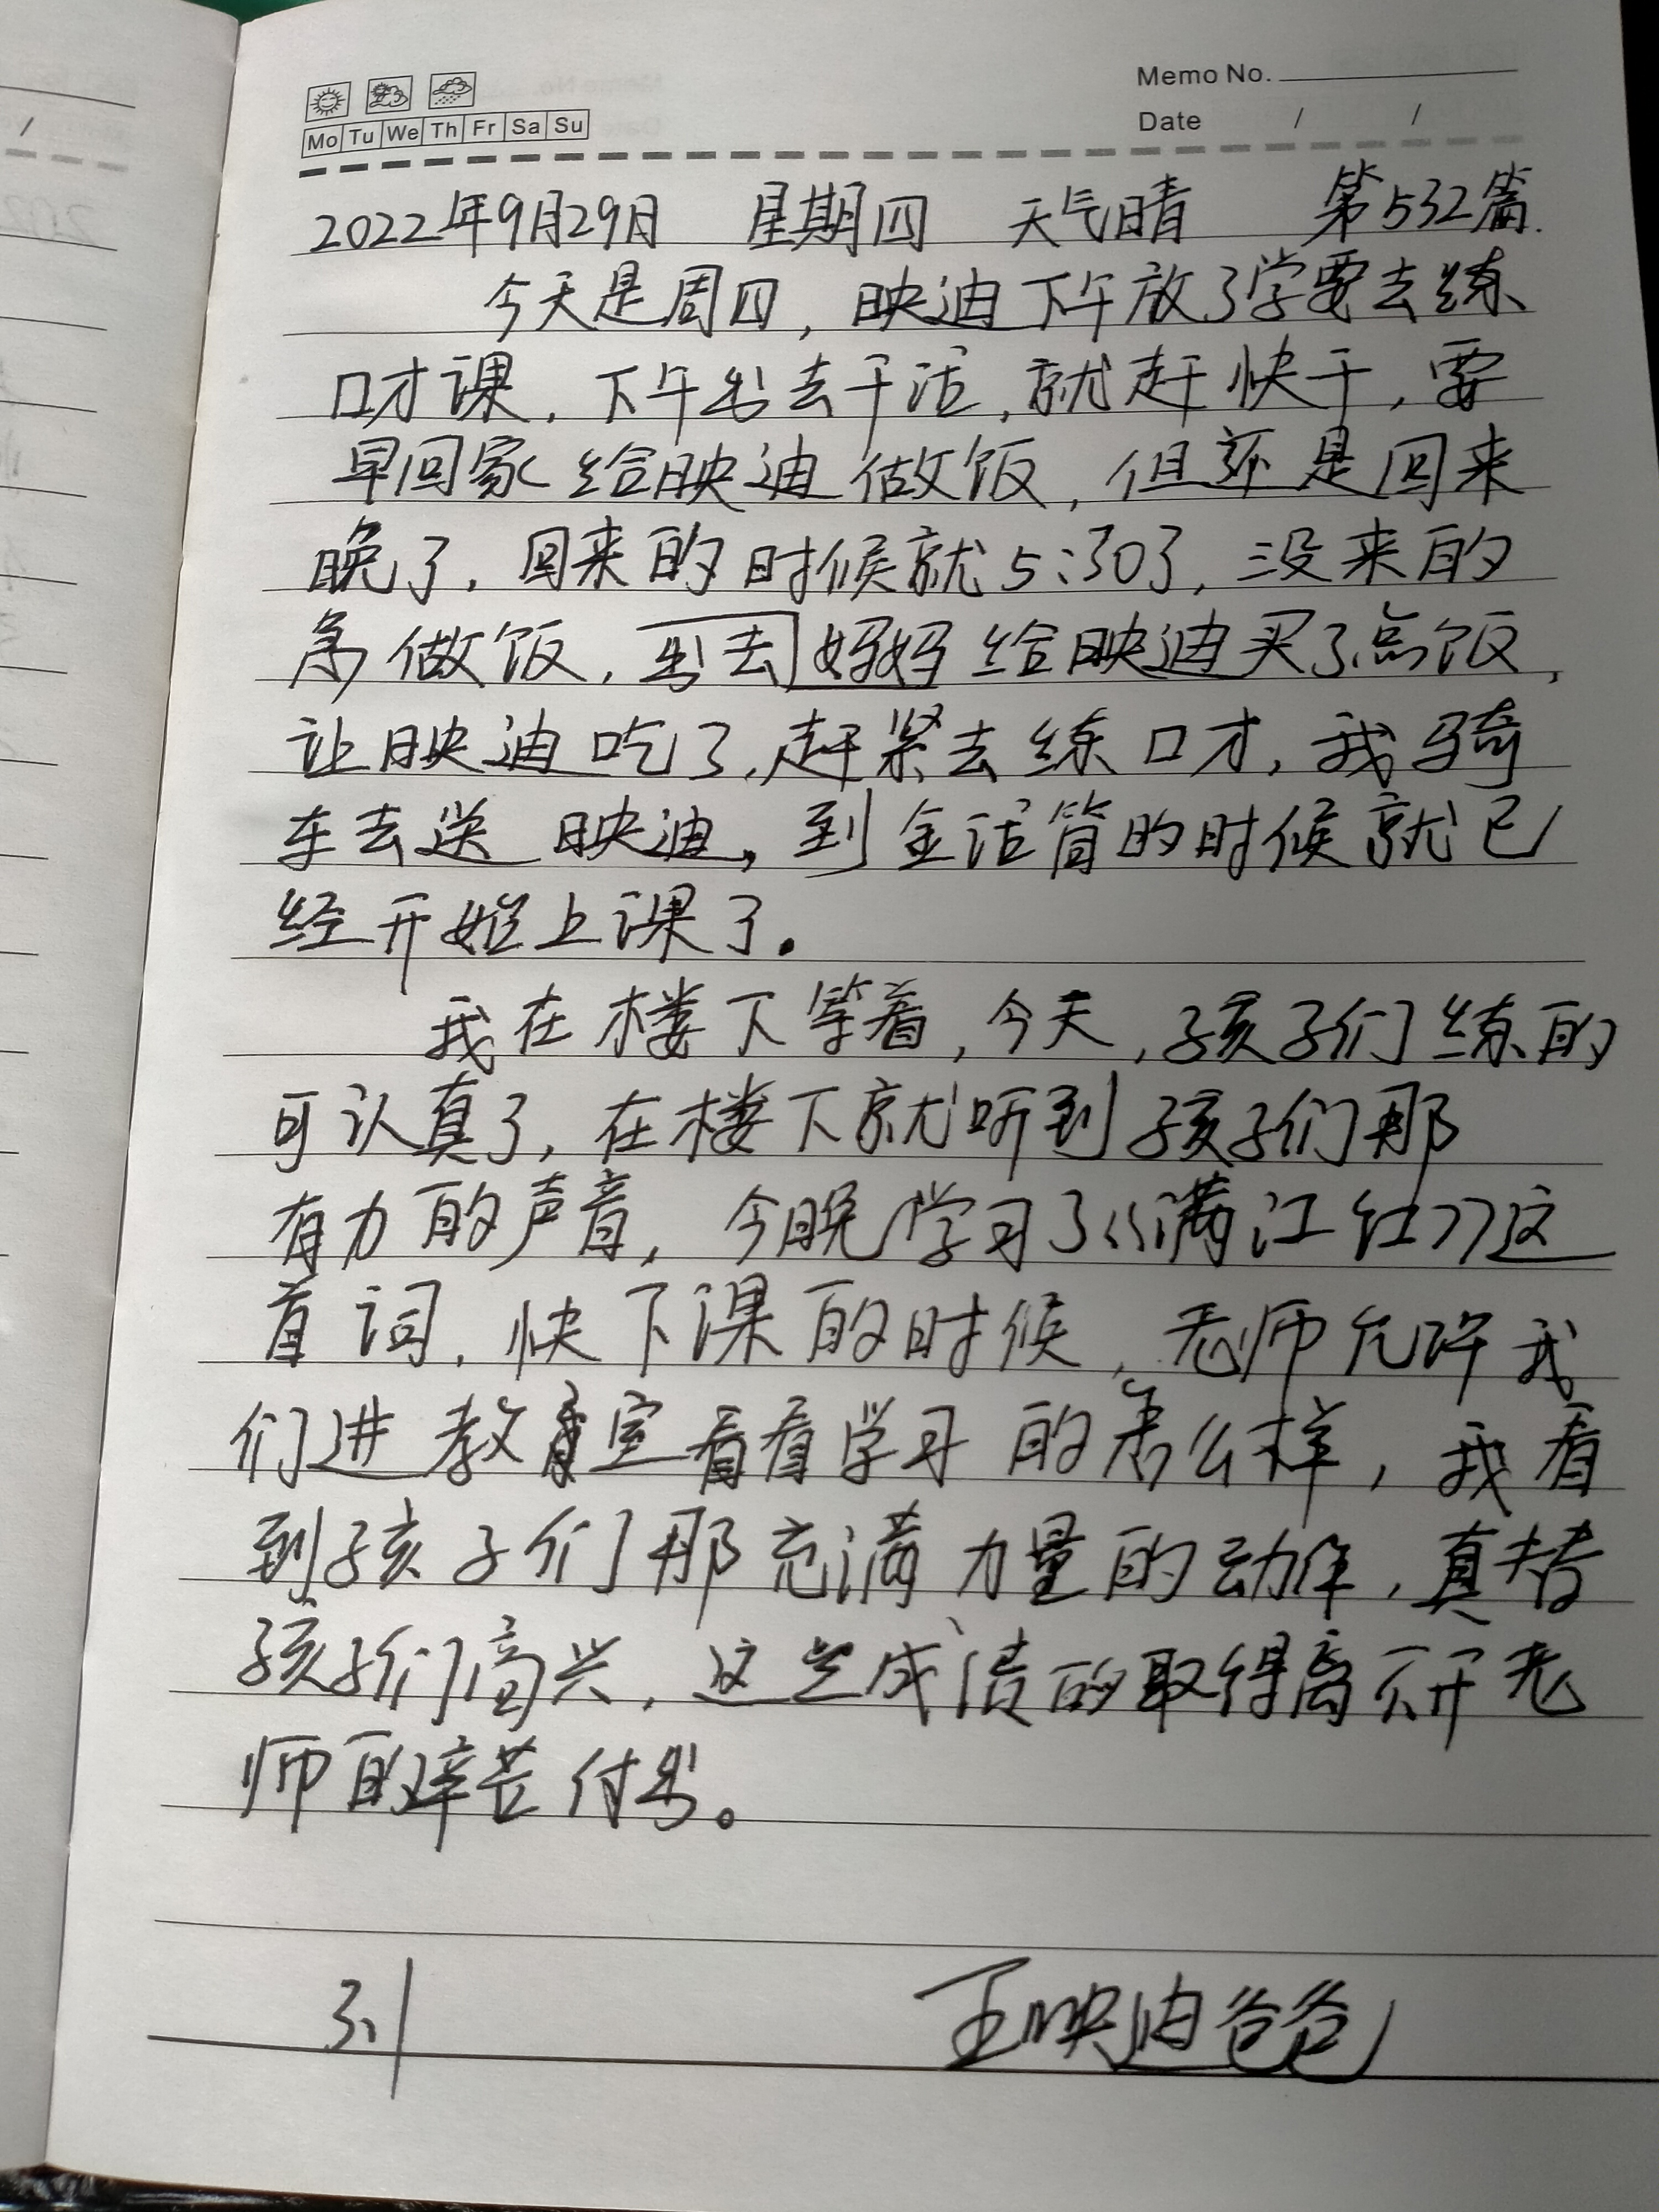 Memo No.
Mo Tu We Th Fr Sa Su
Date / /
2022年9月29日 星期四 天气晴 第532篇.
今天是周四,映迪下午放了学要去练
口才课,下午出去干活,就赶快干,要
早回家给映迪做饭,但还是回来
晚了,回来的时候就5:30了,没来的
急做饭,出去妈妈给映迪买了点饭,
让映迪吃了,赶紧去练口才,我骑
车去送映迪,到金话筒的时候就已
经开始上课了.
我在楼下等着,今天,孩子们练的
可认真了,在楼下就听到孩子们那
有力的声音,今晚学习了《满江红》这
首词,快下课的时候,老师允许我
们进教室看看学习的怎么样,我看
到孩子们那充满力量的动作,真替
孩子们高兴,这些成绩的取得离不开老
师的辛苦付出。
王映迪爸爸